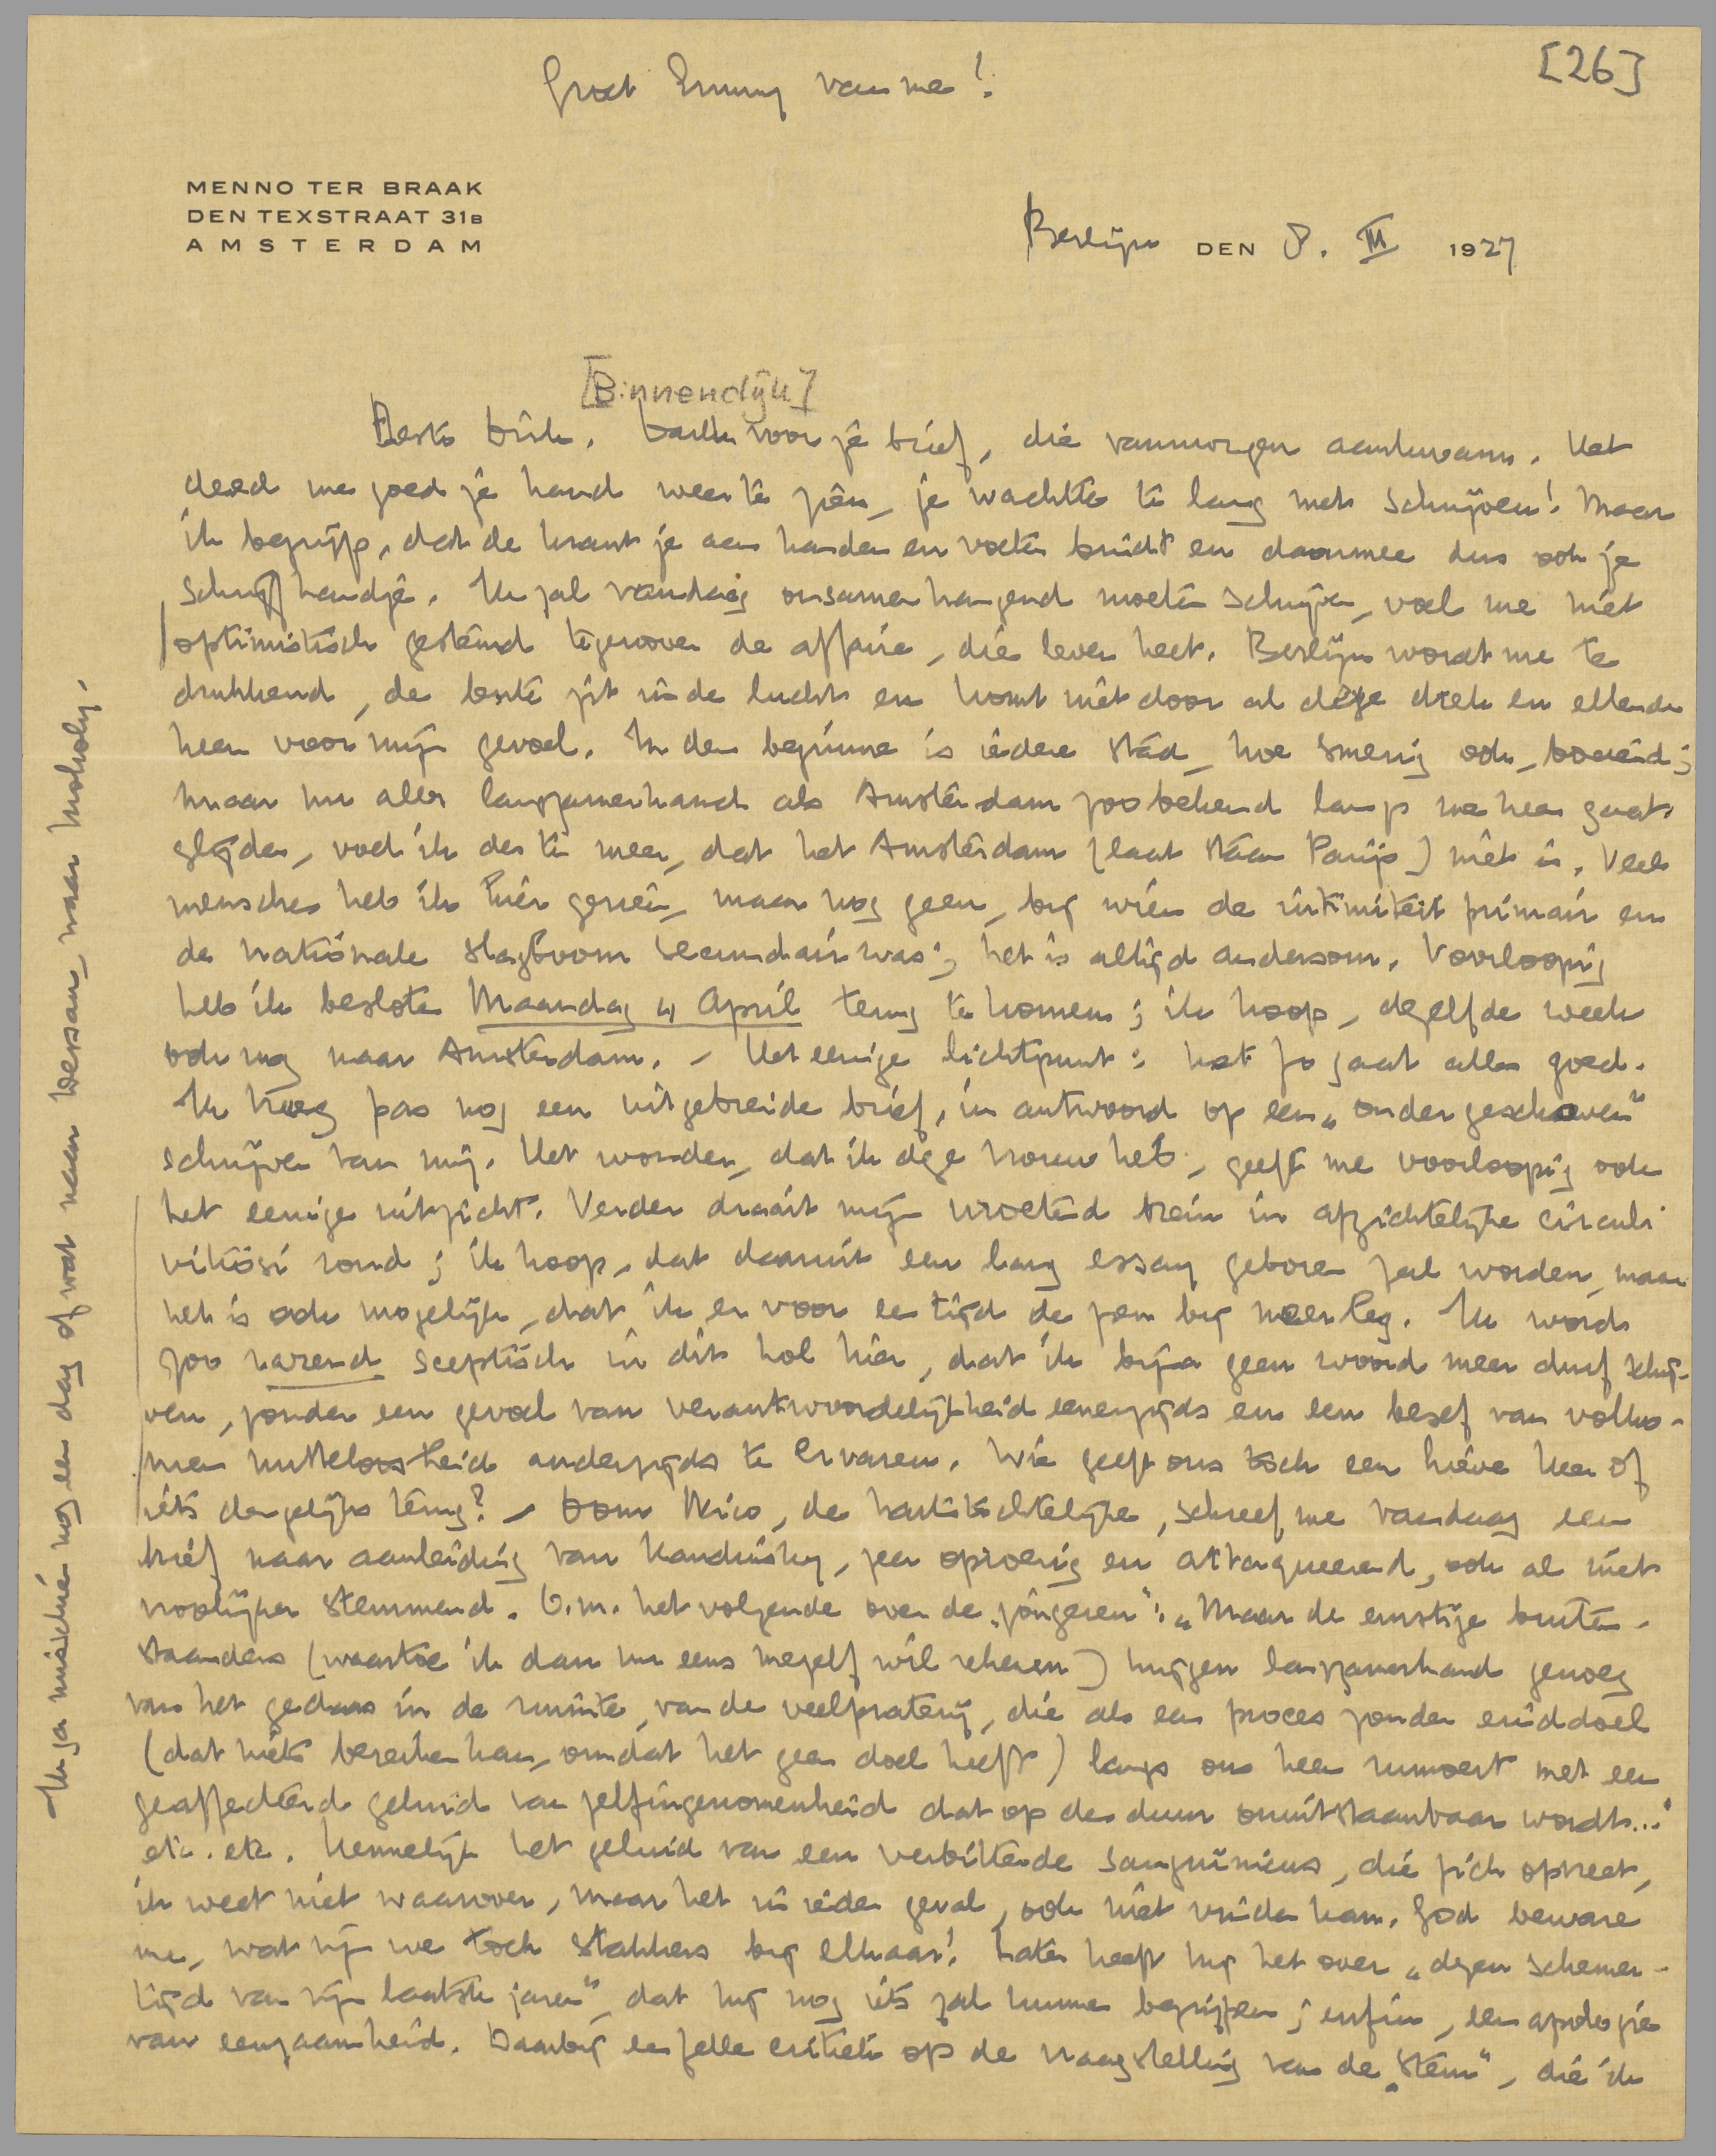 [26]
Groet Emmy van me!
MENNO TER BRAAK
DEN TEXSTRAAT 31B
AMSTERDAM
Berlijn DEN 8. III 1927
[Binnendijk]
Beste Dirk. Dank voor je brief, die vanmorgen aankwam. Het
deed me goed je hand weer te zien, je wachtte te lang met schrijven! Maar
ik begrijp, dat de krant je aan handen en voeten bindt en daarmee dus ook je
schrijfhandje. Ik zal vandaag onsamenhangend moeten schrijven, voel me niet
optimistisch gestemd tegenover de affaire, die leven heet. Berlijn wordt me te
drukkend, de lente zit in de lucht en komt niet door al deze drek en ellende
heen voor mijn gevoel. In den beginne is iedere stad, hoe smerig ook, boeiend;
maar nu alles langzamerhand als Amsterdam zoo bekend langs me heen gaat
glijden, voel ik des te meer, dat het Amsterdam (laat staan Parijs) niet is. Veel
menschen heb ik hier gezien, maar nog geen, bij wien de intimiteit primair en
de nationale slagboom secundair was; het is altijd andersom. Voorloopig
heb ik besloten Maandag 4 April terug te komen; ik hoop, dezelfde week
ook nog naar Amsterdam. – Het eenige lichtpunt: met Jo gaat alles goed.
Ik kreeg pas nog een uitgebreide brief, in antwoord op een „ondergeschoven”
schrijven van mij. Het wonder, dat ik deze vrouw heb, geeft me voorloopig ook
het eenige uitzicht. Verder draait mijn wroetend brein in afzichtelijke circuli
vitiosi rond; ik hoop, dat daaruit een lang essay geboren zal worden, maar
het is ook mogelijk, dat ik er voor een tijd de pen bij neerleg. Ik word
zoo razend sceptisch in dit hol hier, dat ik bijna geen woord meer durf schrij-
ven, zonder een gevoel van verantwoordelijkheid eenerzijds en een besef van volko-
men nutteloosheid anderzijds te ervaren. Wie geeft ons toch een lieve heer of
iets dergelijks terug? – Oom Nico, de hartstochtelijke, schreef me vandaag een
brief naar aanleiding van Kandinsky, zeer oproerig en attaqueerend, ook al niet
vroolijker stemmend. O.m. het volgende over de „jongeren”: „Maar de ernstige buiten-
staanders (waartoe ik dan nu eens mezelf wil rekenen) krijgen langzamerhand genoeg
van het gedaas in de ruimte, van de veelpraterij, die als een proces zonder einddoel
(dat niets bereiken kan, omdat het geen doel heeft) langs ons heen rumoert met een
geaffecteerd geluid van zelfingenomenheid dat op den duur onuitstaanbaar wordt...”
etc. etc. Kennelijk het geluid van een verbitterde sanguinicus, die zich opvreet,
ik weet niet waarover, maar het in ieder geval, ook niet vinden kan. God beware
me, wat zijn we toch stakkers bij elkaar! Later heeft hij het over „dezen schemer-
tijd van mijn laatste jaren”, dat hij nog iets zal kunnen begrijpen; enfin, een apologie
van eenzaamheid. Daarbij een felle critiek op de vraagstelling van de „Stem”, die ik
Ik ga misschien nog een dag of wat naar Dessau, naar Moholy.